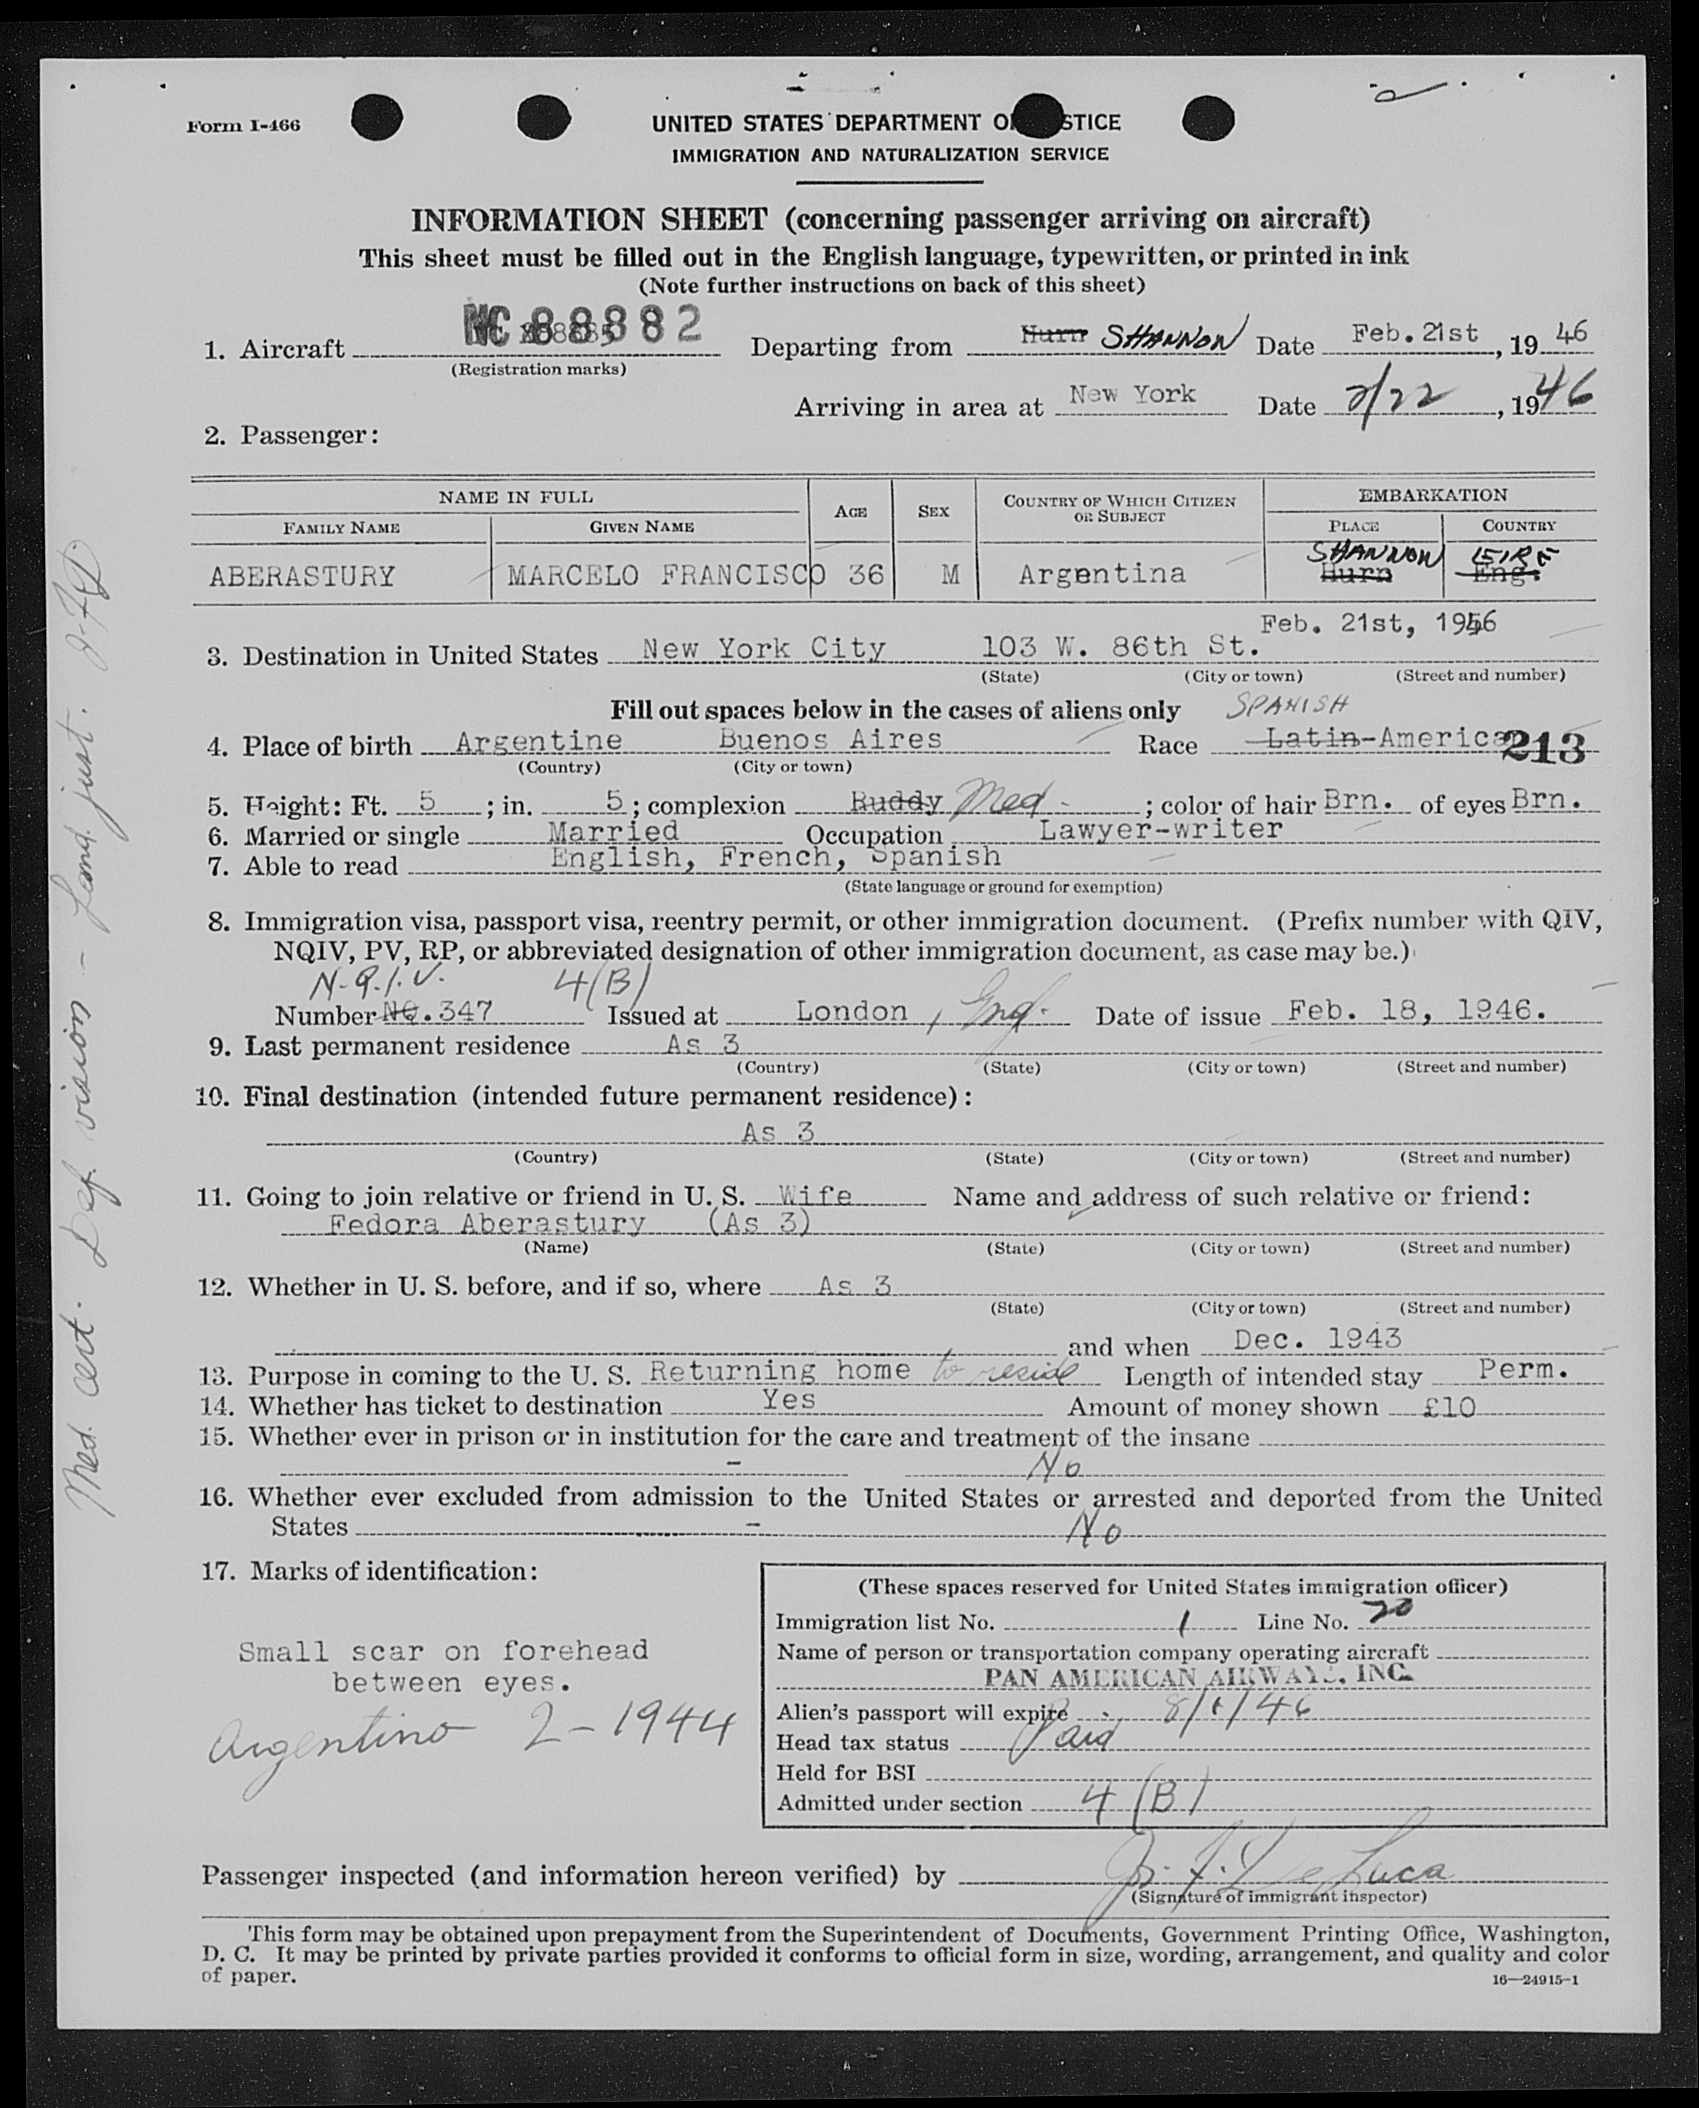 Form I-466
UNITED STATES DEPARTMENT O STICE
IMMIGRATION AND NATURALIZATION SERVICE
INFORMATION SHEET (concerning passenger arriving on aircraft)
This sheet must be filled out in the English language, typewritten, or printed in ink
(Note further instructions on back of this sheet)
1. Aircraft NC 88882 Departing from Hurn SHANNON Date Feb. 21st, 19 46
(Registration marks)
Arriving in area at New York Date 2/22, 1946
2. Passenger:
NAME IN FULL AGE SEX COUNTRY OF WHICH CITIZEN OR SUBJECT EMBARKATION
FAMILY NAME GIVEN NAME PLACE COUNTRY
SHANNON EIRE
ABERASTURY MARCELO FRANCISCO 36 M Argentina Hurn Eng.
Feb. 21st, 1946
3. Destination in United States New York City 103 W. 86th St.
(State) (City or town) (Street and number)
Fill out spaces below in the cases of aliens only SPANISH
4. Place of birth Argentine Buenos Aires Race Latin-American 213
(Country) (City or town)
5. Height: Ft. 5 ; in. 5 ; complexion Ruddy Med. ; color of hair Brn. of eyes Brn.
6. Married or single Married Occupation Lawyer-writer
7. Able to read English, French, Spanish
(State language or ground for exemption)
8. Immigration visa, passport visa, reentry permit, or other immigration document. (Prefix number with QIV,
NQIV, PV, RP, or abbreviated designation of other immigration document, as case may be.)
N.Q.I.V. 4(B)
Number NQ.347 Issued at London, Eng. Date of issue Feb. 18, 1946.
9. Last permanent residence As 3
(Country) (State) (City or town) (Street and number)
10. Final destination (intended future permanent residence):
As 3
(Country) (State) (City or town) (Street and number)
11. Going to join relative or friend in U. S. Wife Name and address of such relative or friend:
Fedora Aberastury (As 3)
(Name) (State) (City or town) (Street and number)
12. Whether in U. S. before, and if so, where As 3
(State) (City or town) (Street and number)
and when Dec. 1943
13. Purpose in coming to the U. S. Returning home to reside Length of intended stay Perm.
14. Whether has ticket to destination Yes Amount of money shown £10
15. Whether ever in prison or in institution for the care and treatment of the insane
- No
16. Whether ever excluded from admission to the United States or arrested and deported from the United
States - No
17. Marks of identification:
Small scar on forehead
between eyes.
Argentino 2-1944
(These spaces reserved for United States immigration officer)
Immigration list No. 1 Line No. 20
Name of person or transportation company operating aircraft
PAN AMERICAN AIRWAYS, INC.
Alien's passport will expire 8/1/46
Head tax status Paid
Held for BSI
Admitted under section 4(B)
Passenger inspected (and information hereon verified) by De Luca
(Signature of immigrant inspector)
This form may be obtained upon prepayment from the Superintendent of Documents, Government Printing Office, Washington,
D. C. It may be printed by private parties provided it conforms to official form in size, wording, arrangement, and quality and color
of paper.
16—24915-1
Med. cert. Def. vision -